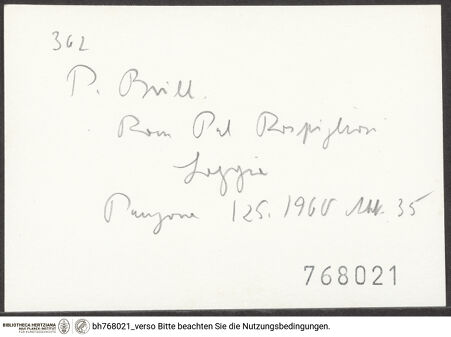 362
P. Brill.
Rom Pal Rospigliosi
Loggie
125. 1960 Abb. 35
768021
BIBLIOTHECA HERTZIANA
MAX-PLANCK-INSTITUT
FÜR KUNSTGESCHICHTE
bh768021_verso Bitte beachten Sie die Nutzungsbedingungen.